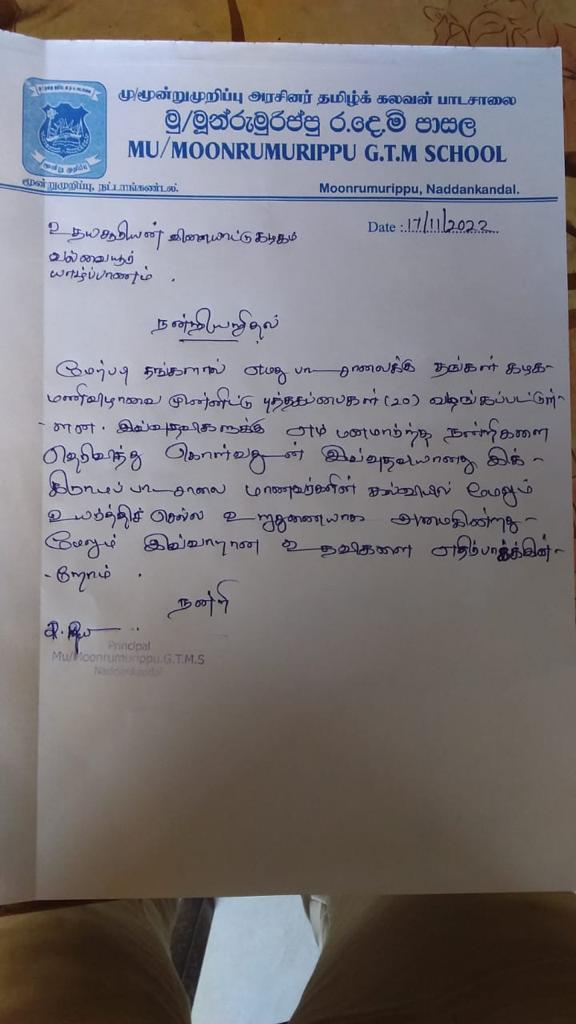 மு/மூன்றுமுறிப்பு அரசினர் தமிழ்க் கலவன் பாடசாலை
MU/MOONRUMURIPPU G.T.M SCHOOL
மூன்றுமுறிப்பு, நட்டாங்கண்டல்.
Moonrumurippu, Naddankandal.
Date :.17/11/2022
உதயசூரியன் விளையாட்டு கழகம்
வல்வையூர்
யாழ்ப்பாணம் .
நன்றியறிதல்
மேற்படி தங்களால் எமது பாடசாலைக்கு தங்கள் கழக-
மணிவிழாவை முன்னிட்டு புத்தகப்பைகள் (20) வழங்கப்பட்டுள்-
-ளன. இவ்வுதவிகளுக்கு எம் மனமார்ந்த நன்றிகளை
தெரிவித்து கொள்வதுடன் இவ்வுதவியானது இக்-
கிராமப் பாடசாலை மாணவர்களின் கல்வியில் மேலும்
உயர்த்திச் செல்ல உறுதுணையாக அமைகின்றது-
மேலும் இவ்வாறான உதவிகளை எதிர்பார்க்கின்-
-றோம் .
நன்றி
Principal
Mu/Moonrumurippu.G.T.M.S
Naddankandal